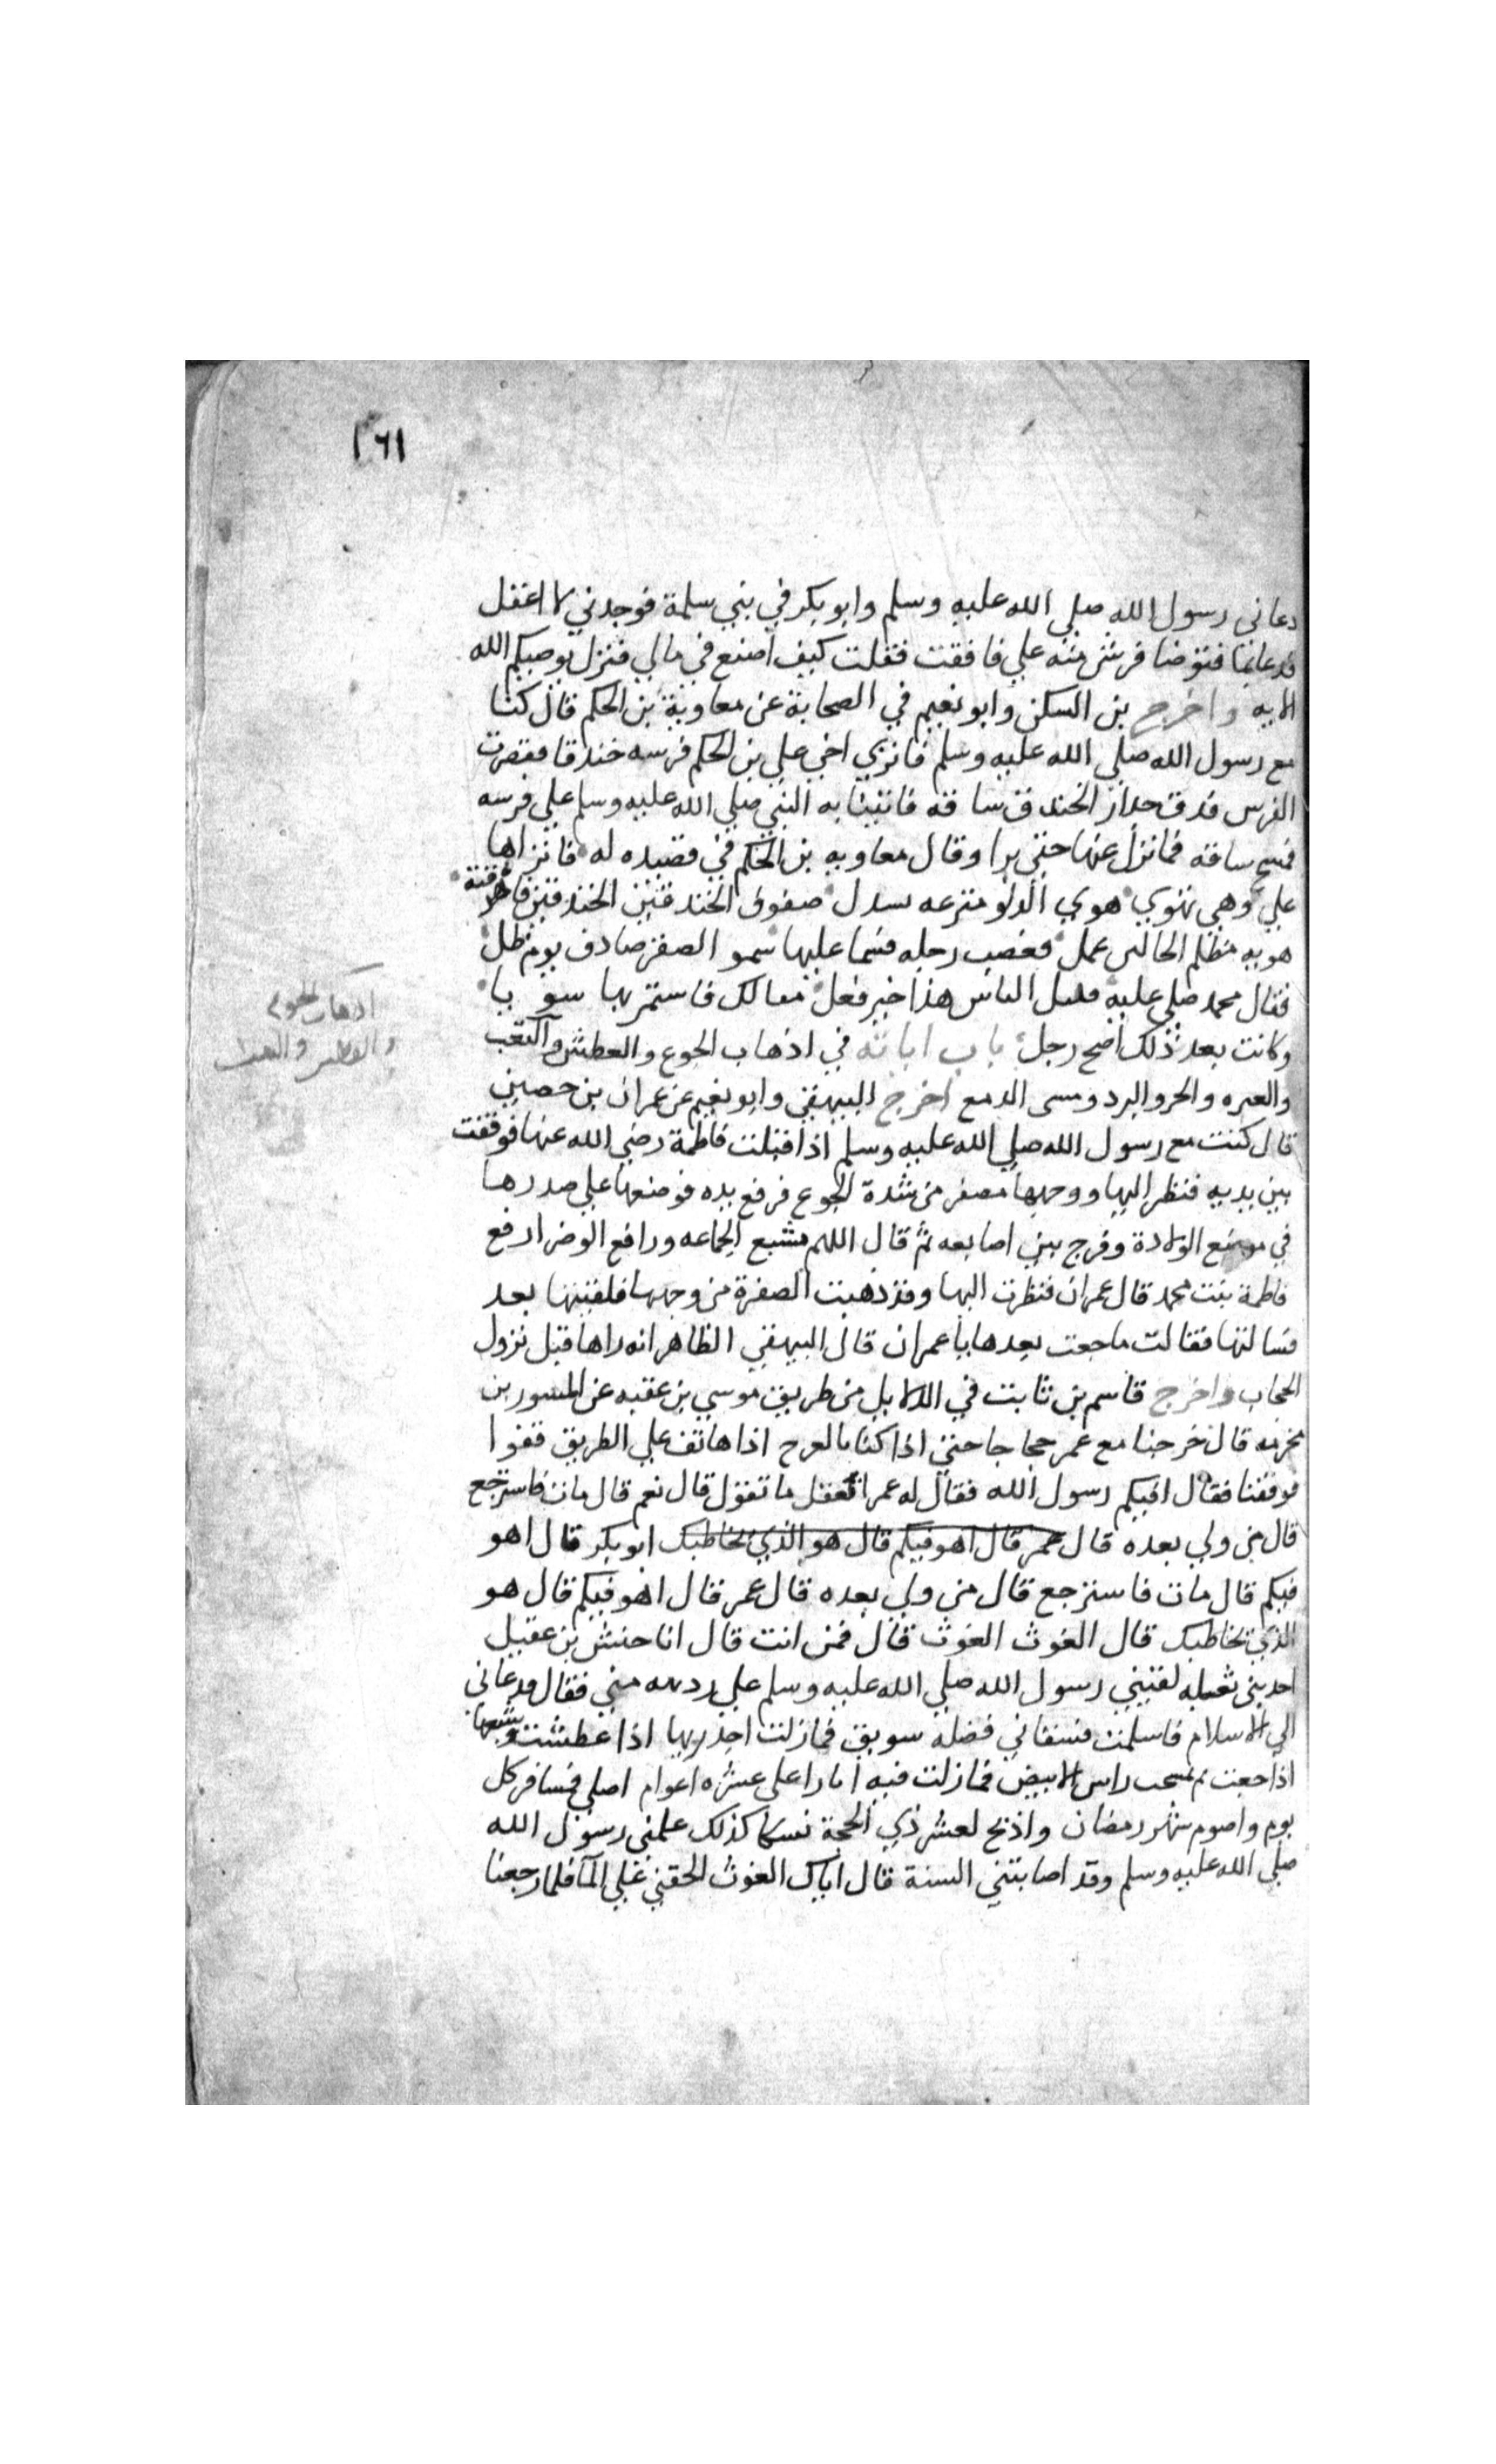 ١٦١
دعانى رسول الله صلي الله عليه وسلم وابو بكر في بني سلمة فوجدني لا اعقل
فدعا بما فتوضا فرش منه علي فافقت فقلت كيف اصنع في مالي فنزل يوصيكم الله
الايه واخرج بن السكن وابو نعيم في الصحابة عن معاوية بن الحكم قال كنا
مع رسول الله صلي الله عليه وسلم فانزي اخي علي بن الحكم فرسه خندقا فقصرت
الفرس فدق جدار الخندق ساقه فاتينا به النبي صلي الله عليه وسلم علي فرسه
فمسح ساقه فما نزل عنها حتي برا وقال معاويه بن الحكم في قصيده له فانزاها
علي وهي تهوي هوي الدلو مترعه بسدل صفوق الخندقين الخندقين فاهرقته
هويه مظلم الحالى عمل فعصب رجله فسما عليها سمو الصقر صادف يوم ظل
فقال محمد صلي عليه مليك الناس هذا خير فعل فعالك فاستمر بها سويا
وكانت بعد ذلك اصح رجل باب اياته في اذهاب الجوع والعطش والتعب
اذهاب الجوع
والعطش والتعب
والعيره والحر والبرد ومسى الدمع اخرج البيهقي وابو نعيم عن عمران بن حصين
قال كنت مع رسول الله صلي الله عليه وسلم اذ اقبلت فاطمة رضي الله عنها فوقفت
بين يديه فنظر اليها ووجهها مصفر من شدة الجوع فرفع يده فوضعها علي صدرها
في موضع القلادة وفرج بين اصابعه ثم قال اللهم مشبع الجماعه ورافع الوضر ارفع
فاطمة بنت محمد قال عمران فنظرت اليها وقد ذهبت الصفرة من وجهها فلقيتها بعد
فسالتها فقالت ما جعت بعدها يا عمران قال البيهقي الظاهر انه راها قبل نزول
الحجاب واخرج قاسم بن ثابت في الدلايل من طريق موسي بن عقبه عن المسور بن
مخرمه قال خرجنا مع عمر حجاجا حتي اذا كنا بالعرج اذا هاتف علي الطريق قفوا
فوقفنا فقال افيكم رسول الله فقال له عمر اتعقل ما تقول قال نعم قال مات فاسترجع
قال من ولي بعده قال عمر قال اهو فيكم قال هو الذي يخاطبك ابو بكر قال اهو
فيكم قال مات فاسترجع قال من ولي بعده قال عمر قال اهو فيكم قال هو
الذي يخاطبك قال الغوث الغوث قال فمن انت قال انا حنش بن عقيل
احد بني ثعيله لقيني رسول الله صلي الله عليه وسلم علي ردهه مني فقال فدعاني
الي الاسلام فاسلمت فسقاني فضله سويق فما زلت اجد ريها اذا عطشت وشبعها
اذا جعت ثم تيممت راس الابيض فما زلت فيه انا واعلي عشره اعوام اصلي خمسا في كل
يوم واصوم شهر رمضان واذبح لعشر ذي الحجة نسكا كذلك علمني رسول الله
صلي الله عليه وسلم وقد اصابتني السنة قال اياك الغوث الحقني علي الما فلما رجعنا